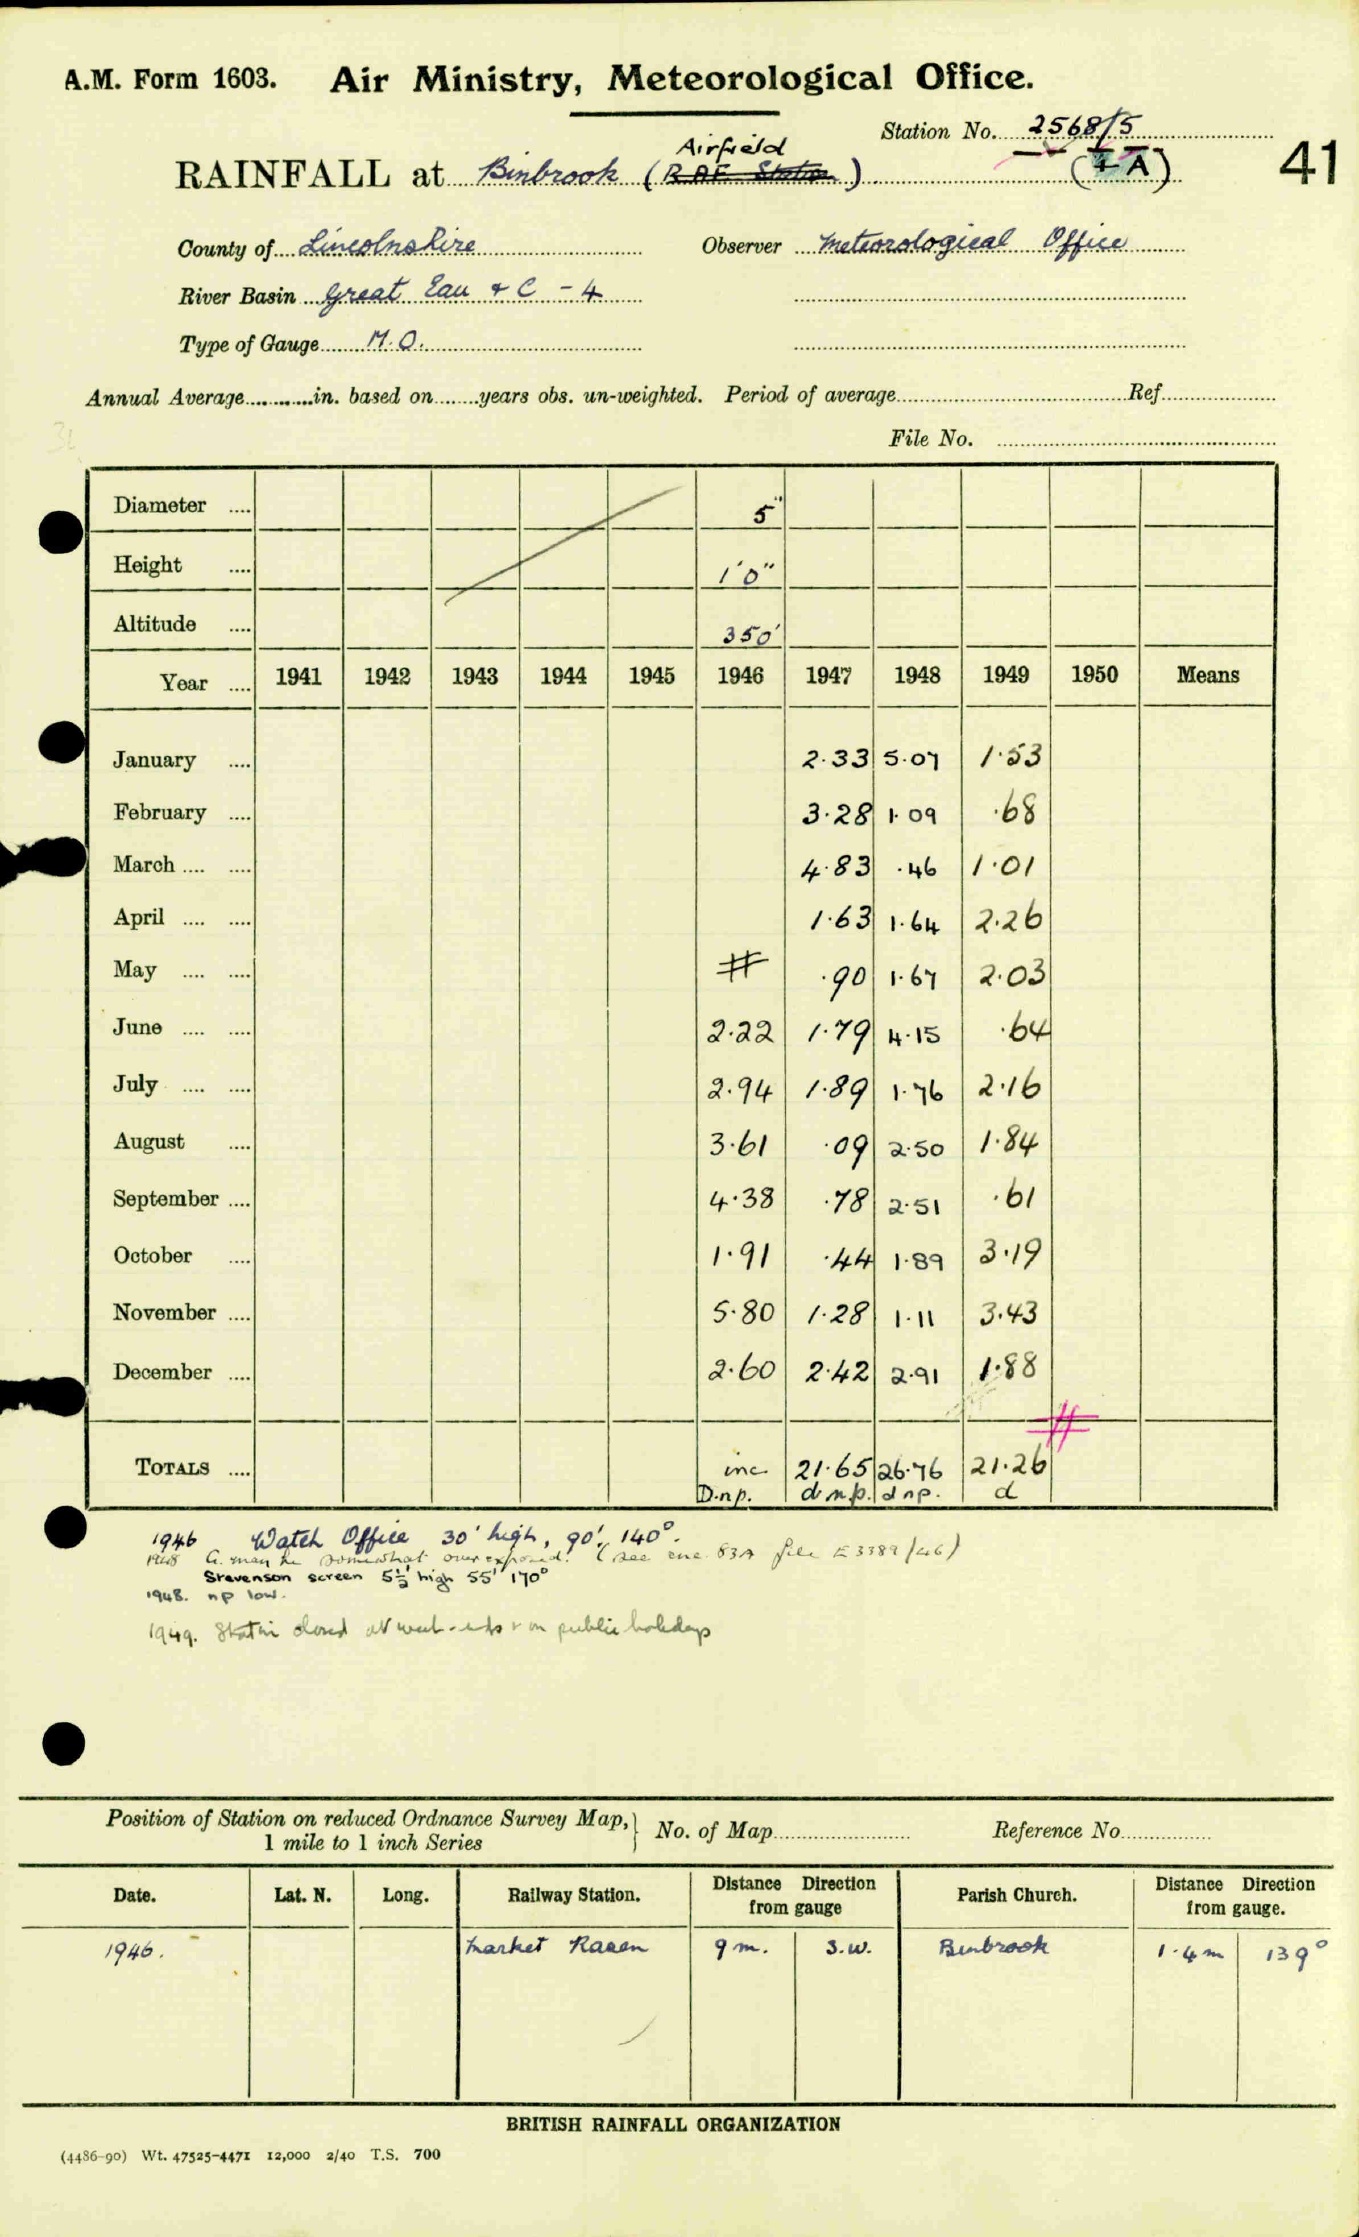 A.M. Form 1603. Air Ministry, Meteorological Office.
Station No. 2568/5
41
Airfield
RAINFALL at Binbrook (RAF Station)
(+ A)
County of Lincolnshire Observer Meteorological Office
River Basin Great Eau & C - 4
Type of Gauge M.O.
Annual Average in. based on years obs. un-weighted. Period of average Ref
File No.
Diameter 5"
Height 1'0"
Altitude 350'
Year 1941 1942 1943 1944 1945 1946 1947 1948 1949 1950 Means
January 2.33 5.07 1.53
February 3.28 1.09 .68
March 4.83 .46 1.01
April 1.63 1.64 2.26
May # .90 1.67 2.03
June 2.22 1.79 4.15 .64
July 2.94 1.89 1.76 2.16
August 3.61 .09 2.50 1.84
September 4.38 .78 2.51 .61
October 1.91 .44 1.89 3.19
November 5.80 1.28 1.11 3.43
December 2.60 2.42 2.91 1.88
#
TOTALS inc 21.65 26.76 21.26
D.n.p. d.n.p. d n p. d
1946 Watch Office 30' high, 90', 140°.
1948 G. may be somewhat over exposed. (See enc. 83A file E3389/46)
Stevenson screen 5½' high 55' 170°
1948. np low.
1949. Station closed at week-ends & on public holidays
Position of Station on reduced Ordnance Survey Map, 1 mile to 1 inch Series No. of Map Reference No.
Date. Lat. N. Long. Railway Station. Distance Direction from gauge Parish Church. Distance Direction from gauge.
1946. Market Rasen 9 m. S.W. Binbrook 1.4 m 139°
BRITISH RAINFALL ORGANIZATION
(4486-90) Wt. 47525-4471 12,000 2/40 T.S. 700